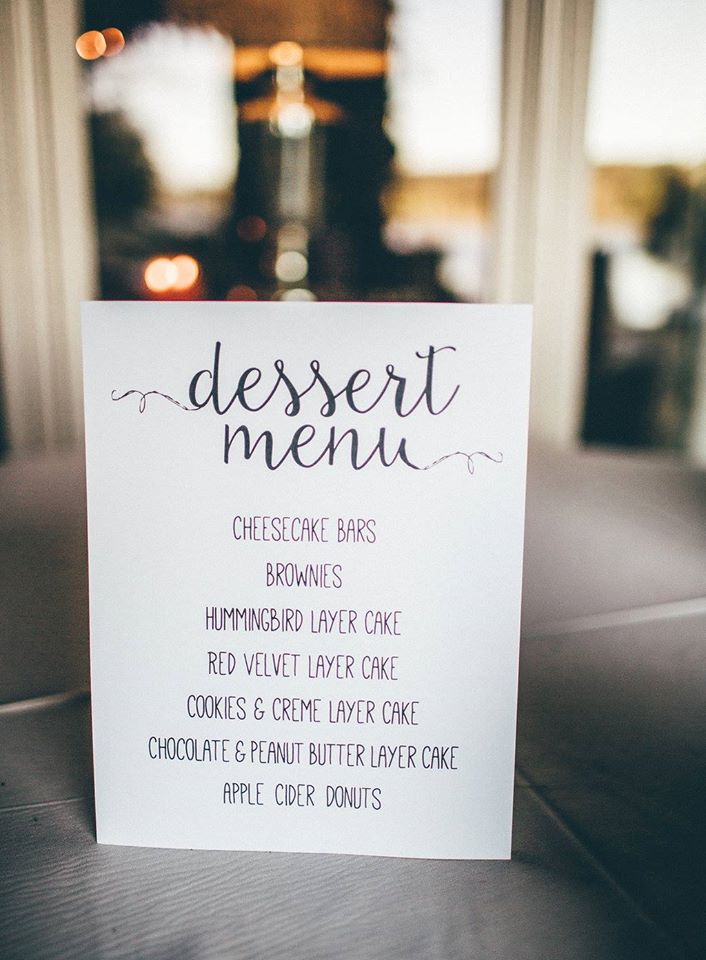 dessert
menu
CHEESECAKE BARS
BROWNIES
HUMMINGBIRD LAYER CAKE
RED VELVET LAYER CAKE
COOKIES & CREME LAYER CAKE
CHOCOLATE & PEANUT BUTTER LAYER CAKE
APPLE CIDER DONUTS